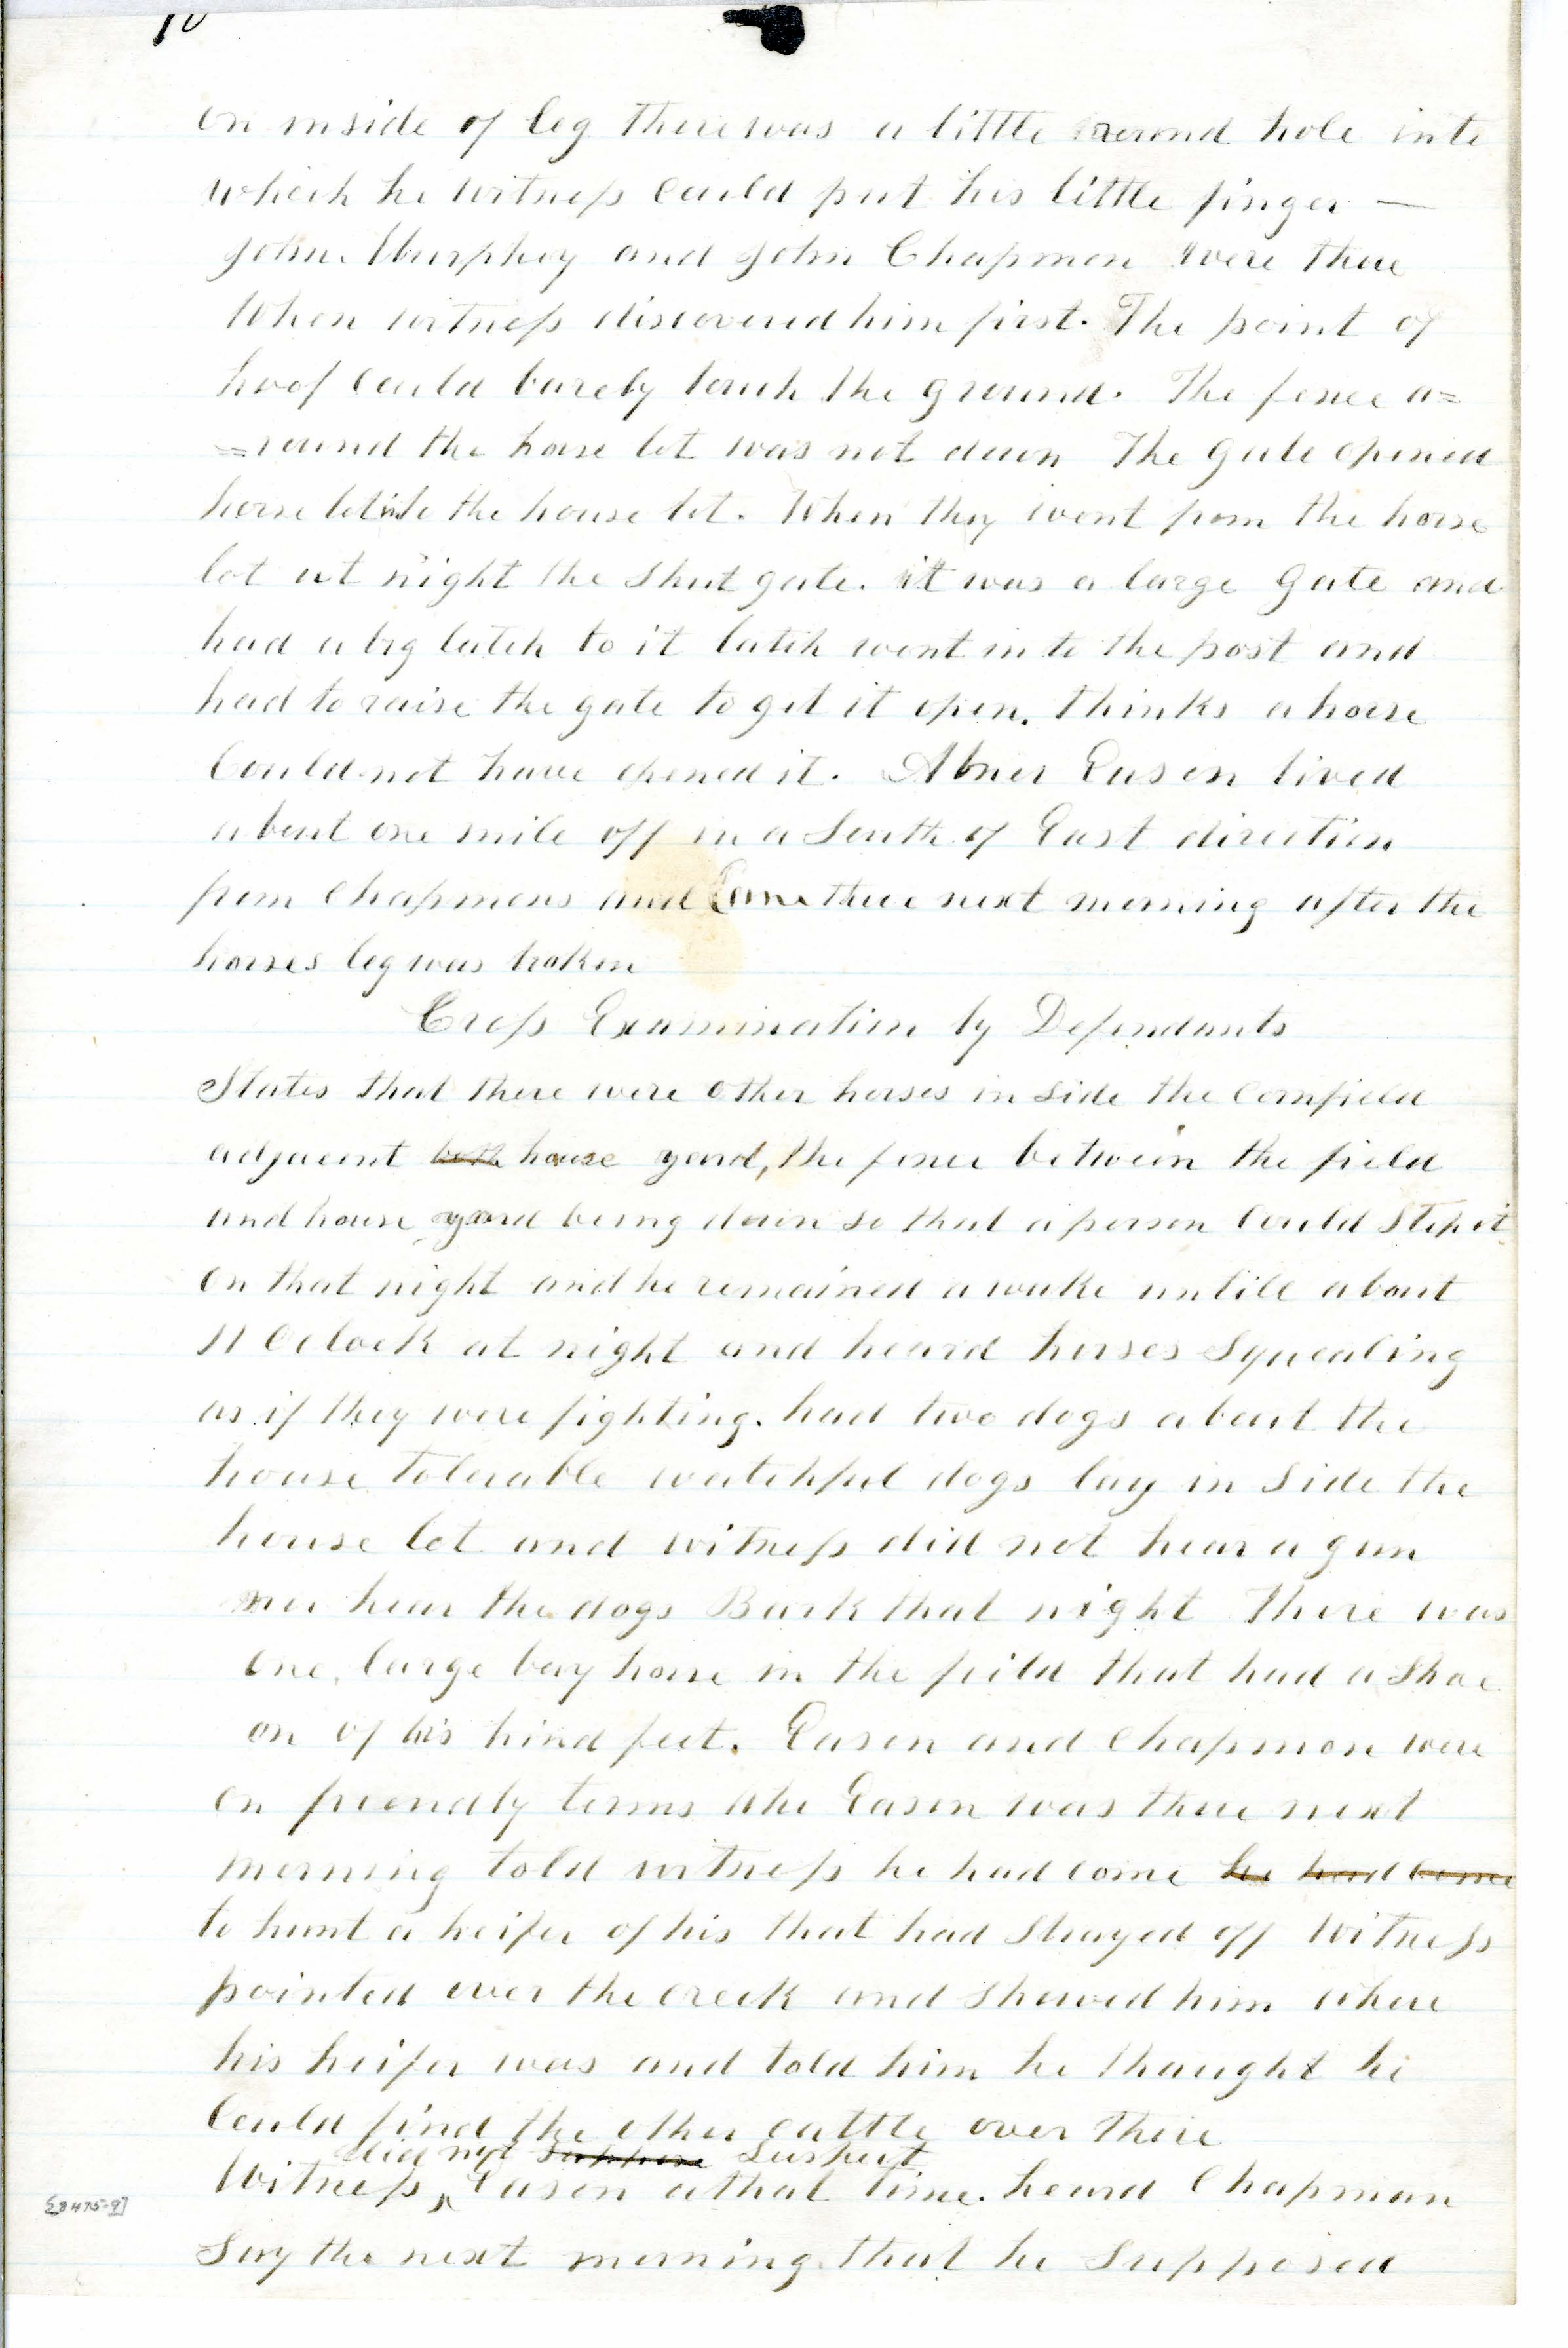 10
on inside of leg there was a little round hole into
which he witness could put his little finger —
John Murphey and John Chapman were there
When witness discovered him first. The point of
hoof could barely touch the ground. The fence a=
=round the horse lot was not down The gate opened
horse lot into the house lot. When they went from the horse
lot at night the Shut gate. it was a large Gate and
had a big latch to it latch went into the post and
had to raise the gate to get it open. thinks a horse
Could not have opened it. Abner Eason lived
about one mile off in a South of East direction
from Chapmans and Came there next morning after the
horses leg was broken
Cross Examination by Defendants
States that there were other horses in side the Cornfield
adjacent both house yard, the fence between the field
and house yard being down so that a person Could Step it
on that night and he remained awake untill about
11 Oclock at night and heard horses Squealing
as if they were fighting. had two dogs about the
house tolerable watchful dogs lay in Side the
house lot and witness did not hear a gun
nor hear the dogs Bark that night There was
one large bay horse in the field that had a Shoe
on of his hind feet. Eason and Chapman were
on friendly terms Abe Eason was there next
morning told witness he had come he had come
to hunt a heifer of his that had Strayed off Witness
pointed over the creek and Showed him where
his heifer was and told him he thought he
Could find the other cattle over there
did not suppose Suspect
Witness Eason a that time. heard Chapman
Say the next morning that he Supposed
[8475-9]